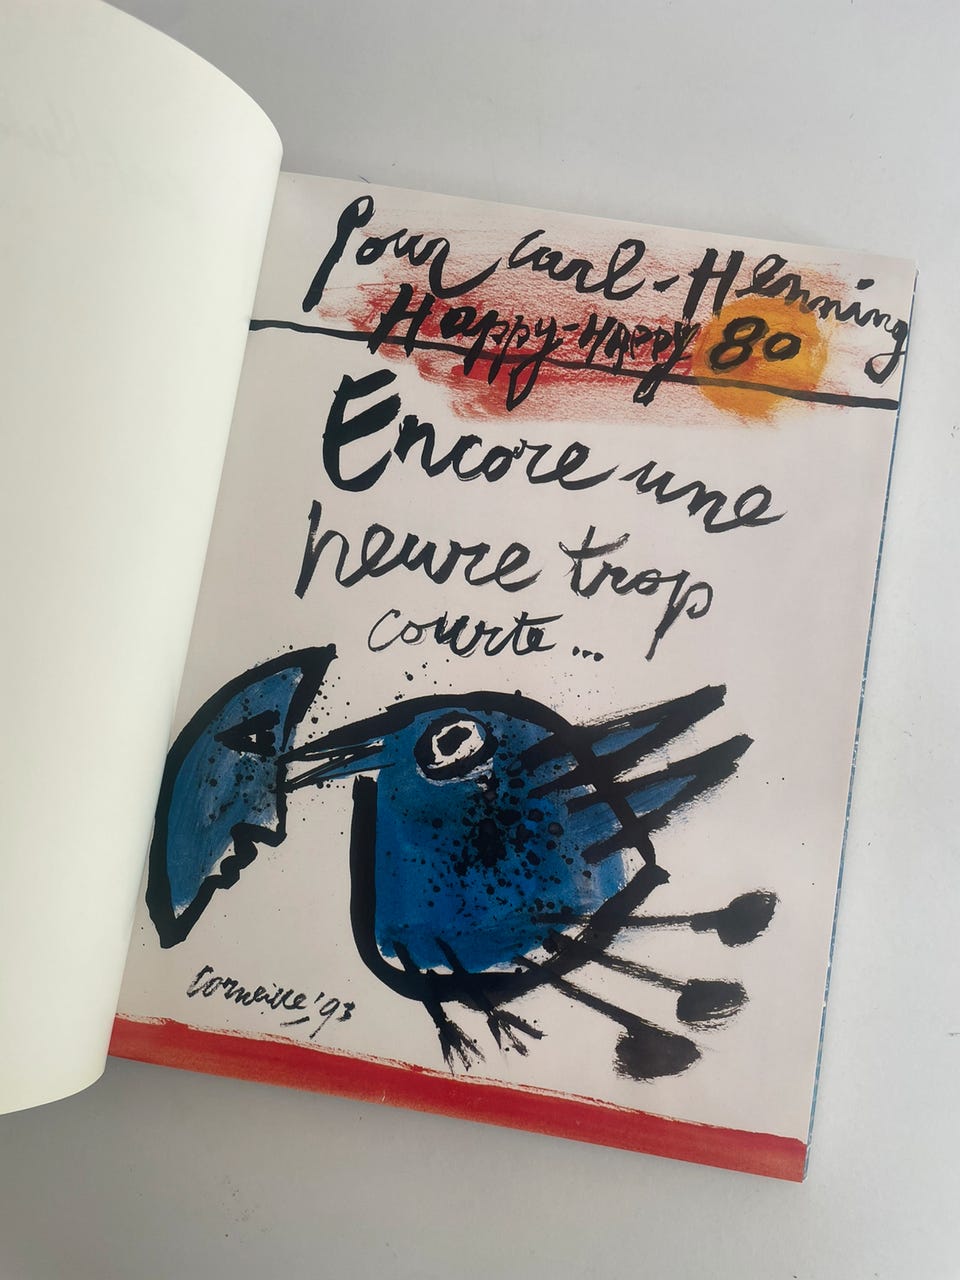 Pour Carl-Henning
Happy-Happy 80
Encore une
heure trop
courte...
Corneille '93